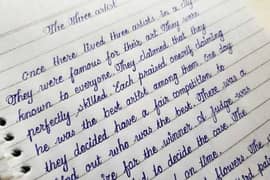 The three artist
Once there lived three artists in a city
They were famous for their art. They were
known to everyone. They claimed that they
perfectly skilled. Each praised oneself claiming
he was the best artist among them. One day
they decided have a fair competition to
out who was the best. There was a
for the winner. A judge was
to decide the case. The
on time.
flowers. The